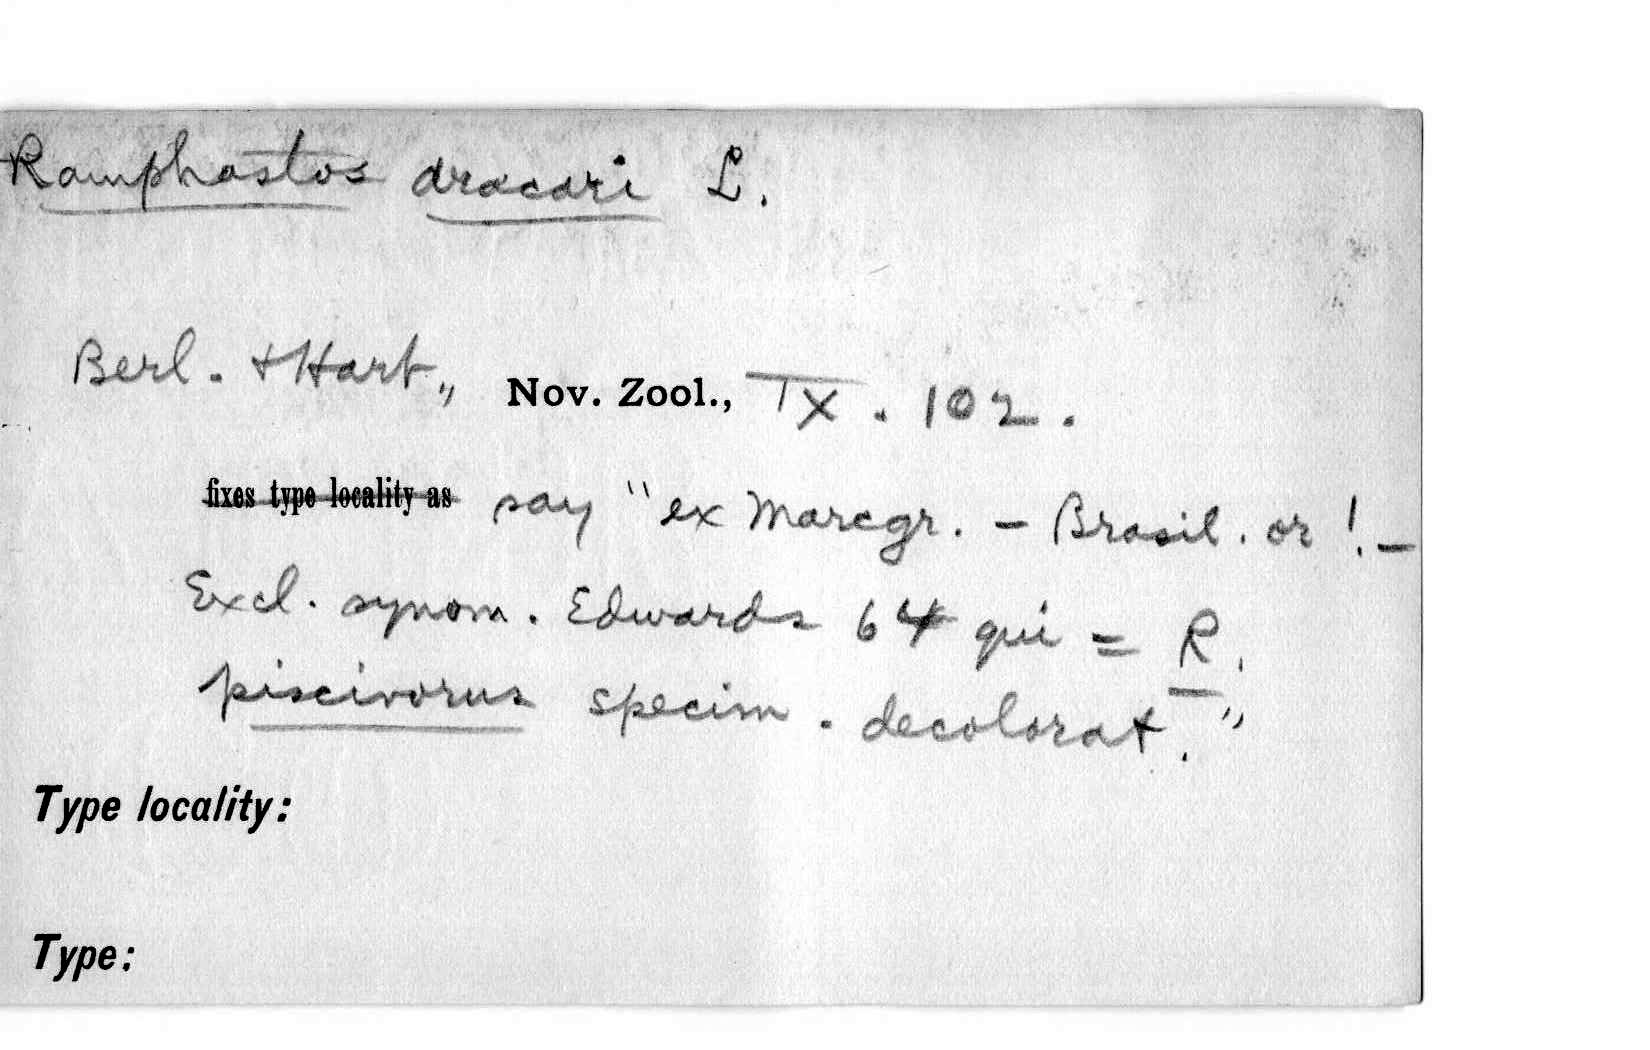 Ramphastos aracari L.
Berl. + Hart., Nov. Zool., IX. 102.
fixes type locality as say "ex Marcgr. – Brasil. or! –
Excl. synom. Edwards 64 qui = R.
piscivorus specim. decolorat."
Type locality:
Type: